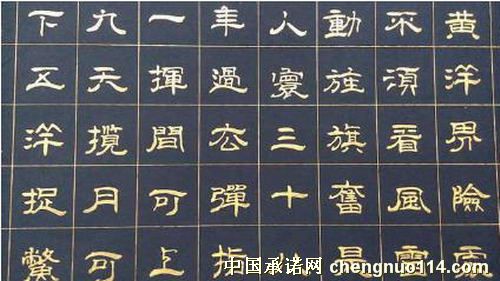 黄洋界險處
不須看風雷
動旌旗奮是
人寰三十八
年過去彈指
一揮間可上
九天攬月可
下五洋捉鱉
中国承诺网 chengnuo114.com